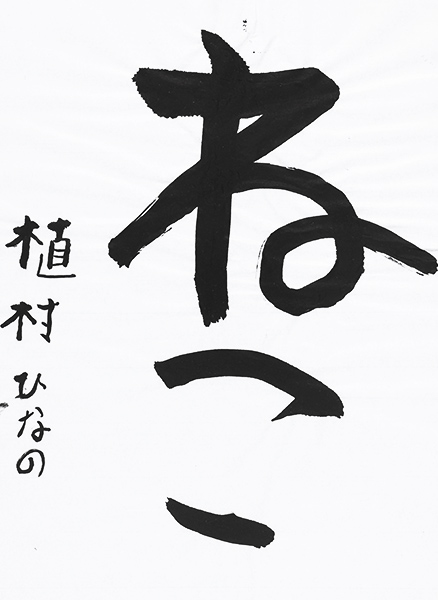 ねこ
植村ひなの